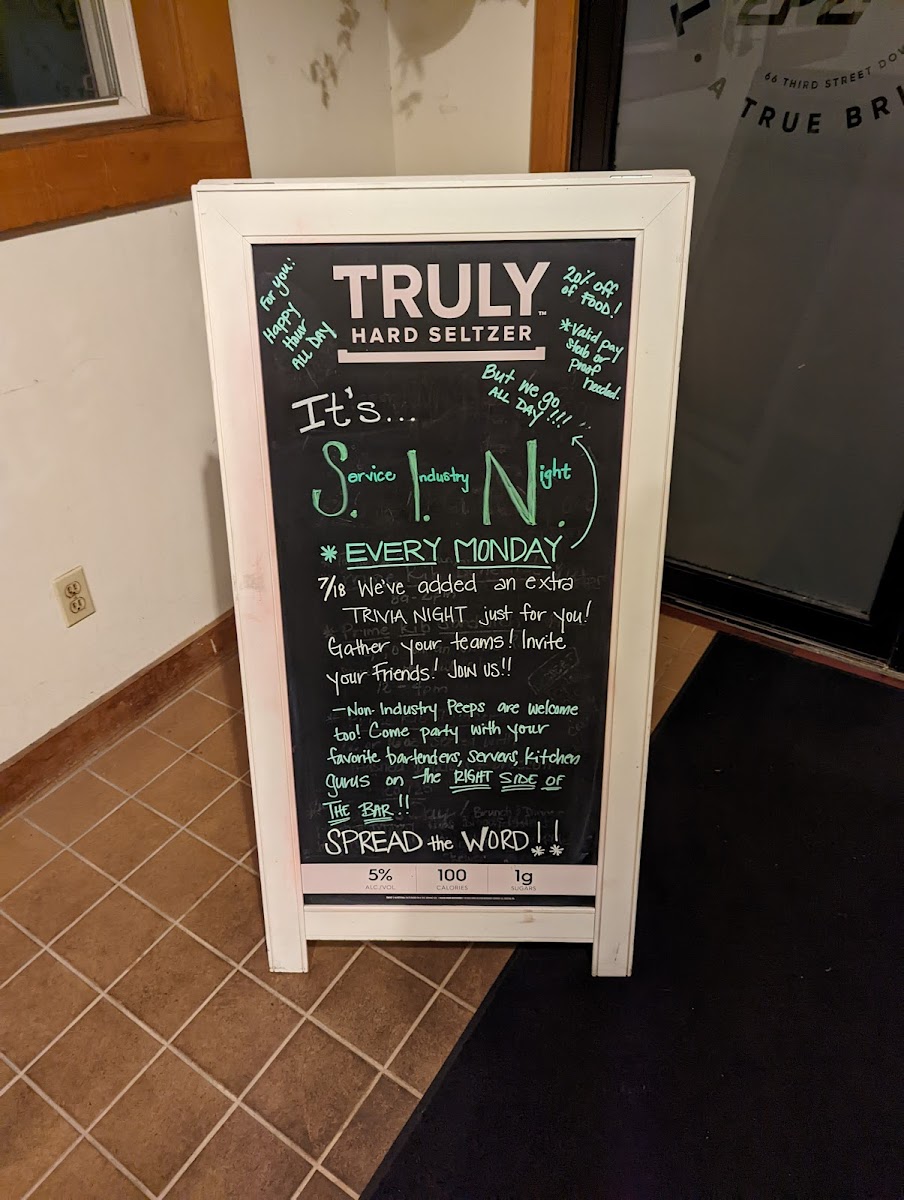 For you:
Happy
Hour
ALL DAY
TRULY™
HARD SELTZER
20% off
of FOOD!
*Valid pay
stub or
proof
needed.
But we go
ALL DAY!!!
It's...
Service Industry Night
S. I. N.
* EVERY MONDAY
7/18 We've added an extra
TRIVIA NIGHT just for you!
Gather your teams! Invite
your Friends! JOIN US!!
-Non-Industry Peeps are welcome
too! Come party with your
favorite bartenders, servers, kitchen
gurus on the RIGHT SIDE OF
THE BAR!!
SPREAD the WORD!!
5% 100 1g
ALC/VOL CALORIES SUGARS
66 THIRD STREET
A TRUE